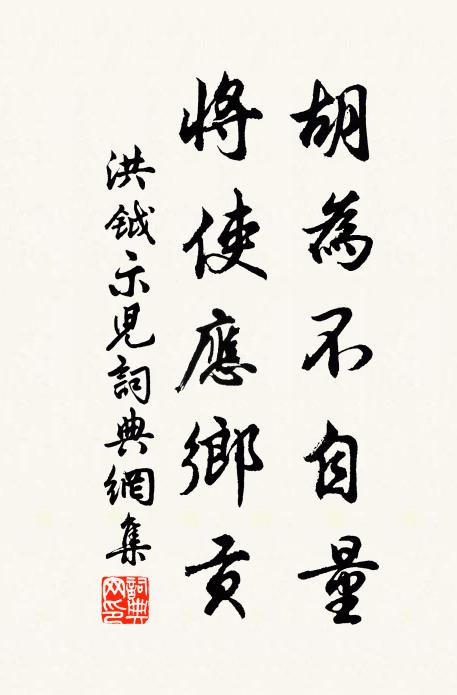 胡為不自量
將使應鄉貢
洪鉞示兒詞典網集
詞典網印